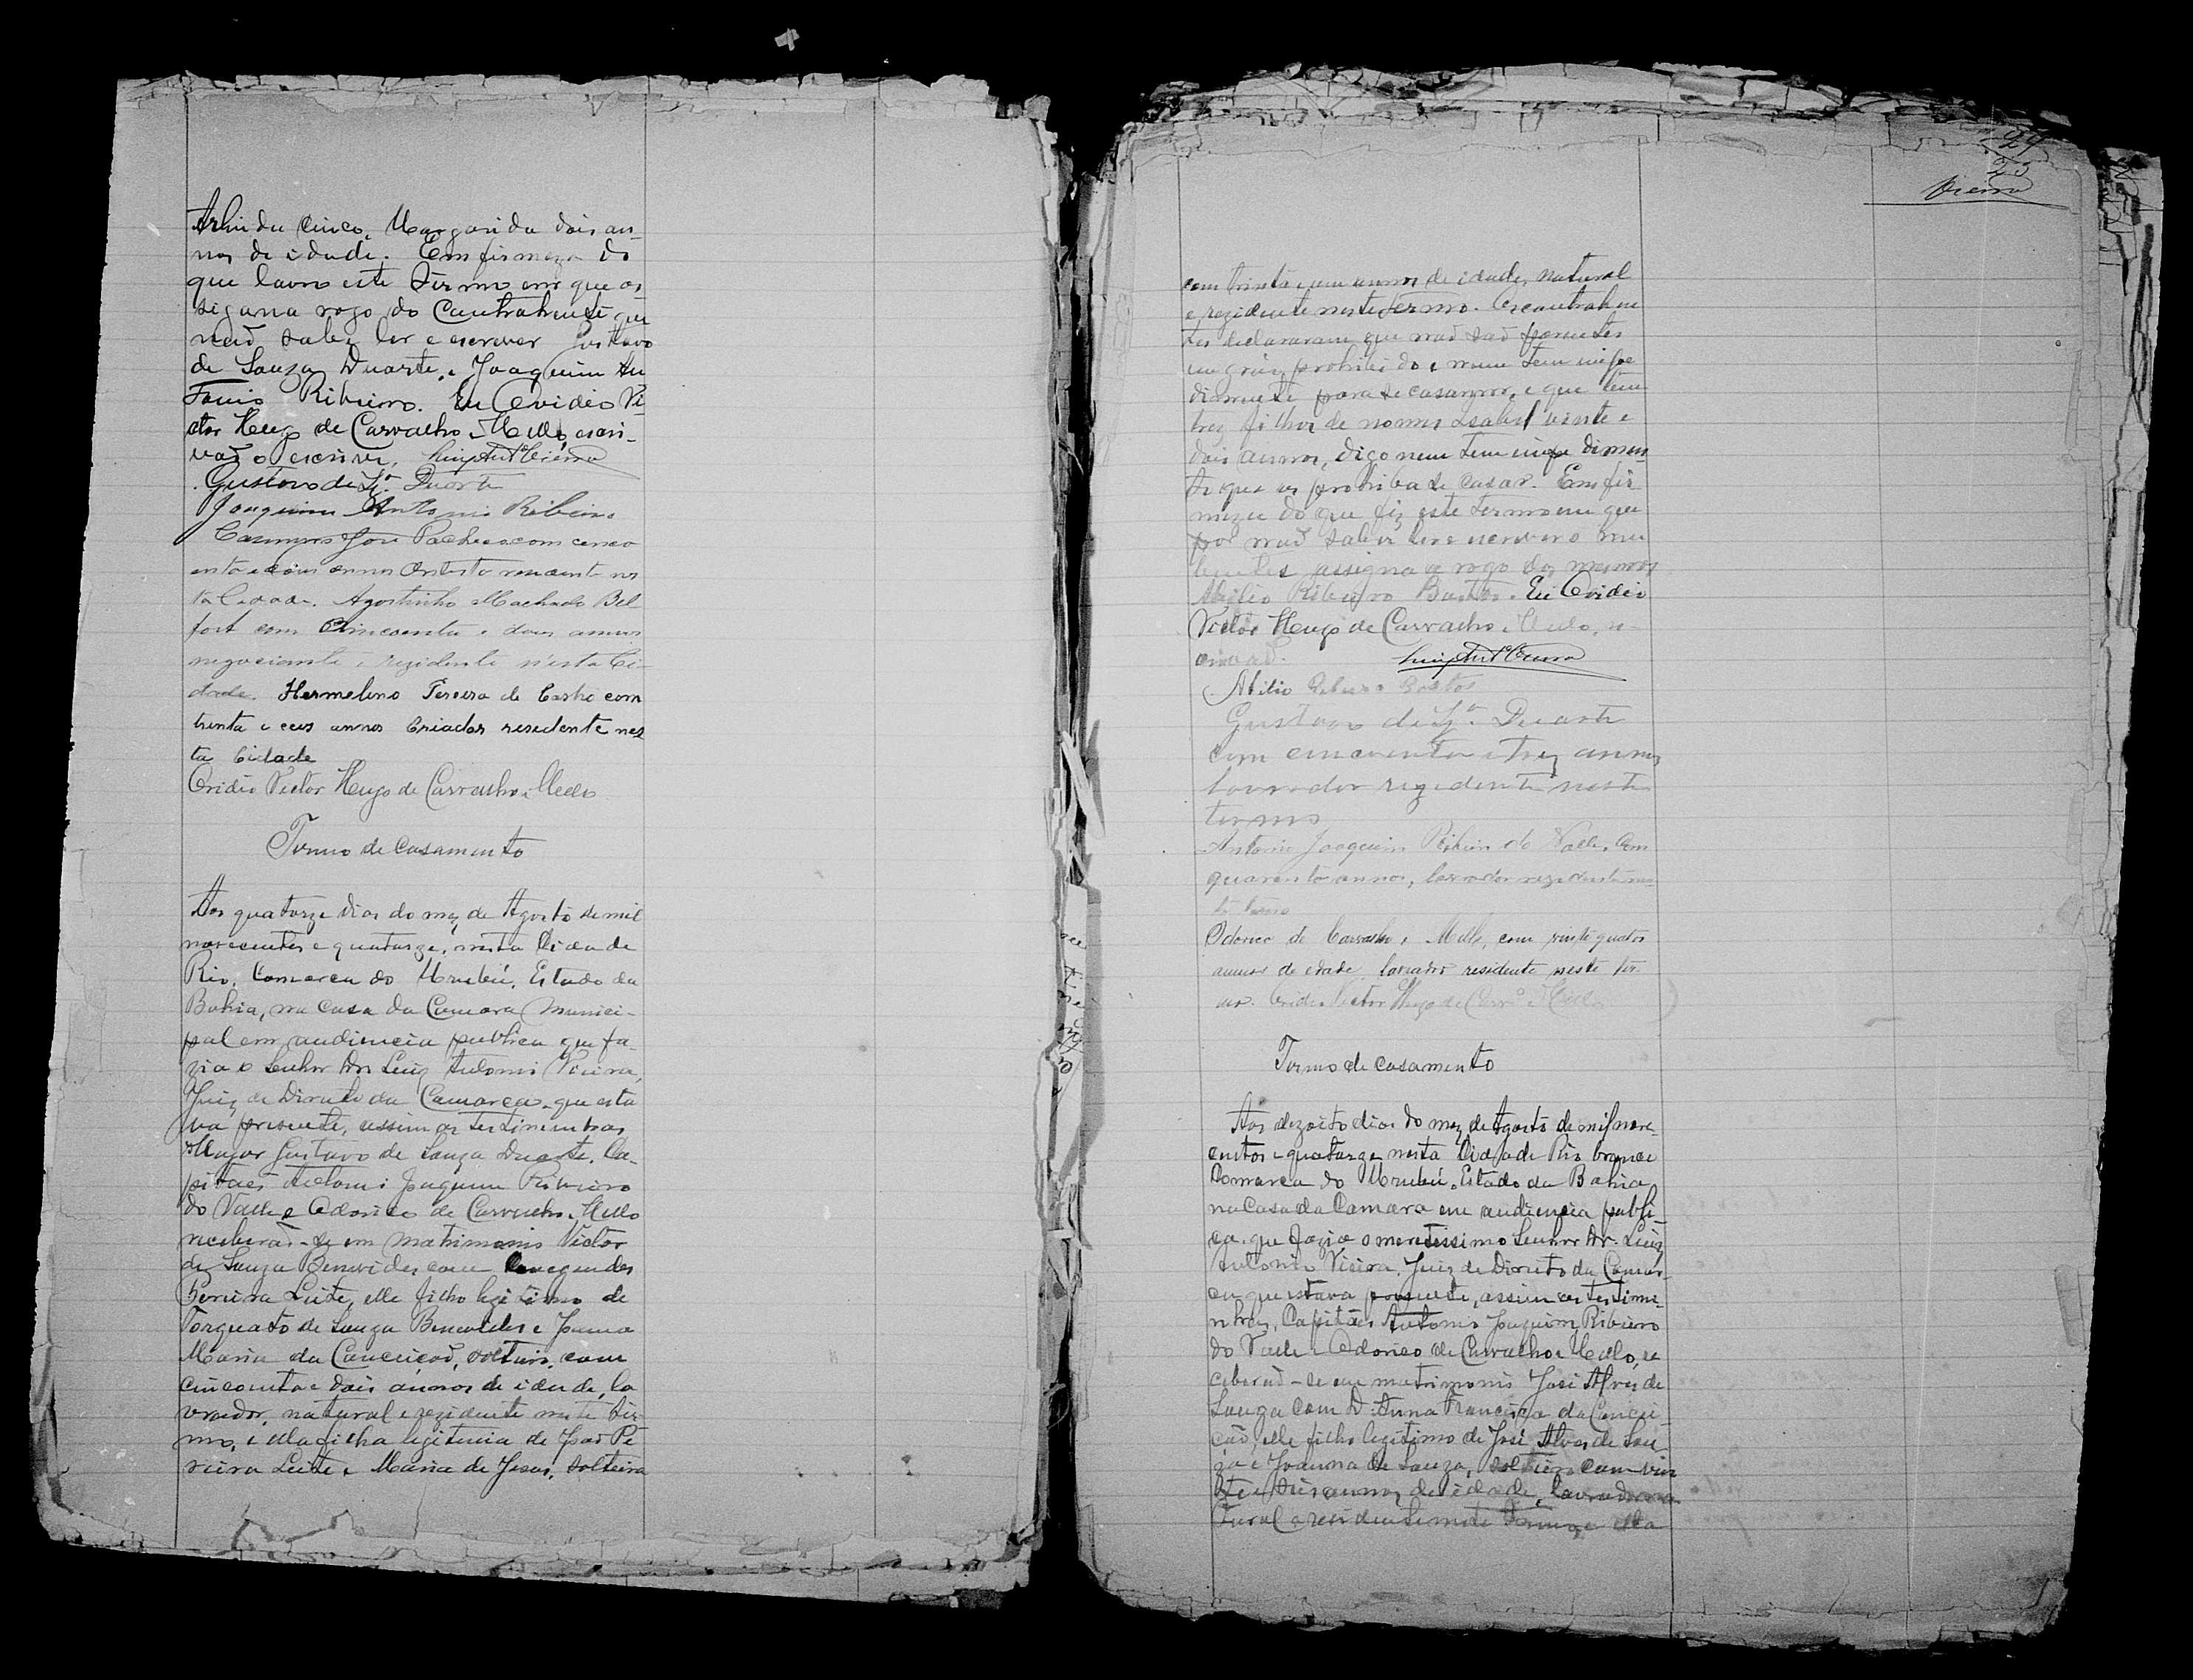 Arlinda cinco, Margarida dois an-
nos de idade. Em firmeza do
que lavro este termo em que as-
signa a rogo do Contrahente que
não sabe ler e escrever Gustavo
de Souza Duarte, e Joaquim An
tonio Ribeiro. Eu Ovidio Vi-
ctor Hugo de Carvalho e Mello, escri-
vaõ o escrivi. Luiz Antº Vieira
Gustavo de Sza. Duarte
Joaquim Antonio Ribeiro
José Pacheco com cinco
enta e annos nes
ta Cidade. Agostinho Machado Bel
fort com Cincoenta e dous annos
negociante e rezidente n'esta Ci-
dade. Hermelino Pereira de Castro com
trinta e seis annos Criador residente nes
ta Cidade
Ovidio Victor Hugo de Carvalho e Mello
Termo de casamento
Aos quatorze dias do mez de Agosto de mil
novecentos e quatorze, nesta Cidade
Rio, Comarca do Urubú, Estado da
Bahia, na Casa da Camara Munici-
pal em audiencia publica que fa-
zia o Senhor Dr Luiz Antonio Vieira,
Juiz de Direito da Comarca, que esta
va presente, assim as testimunhas
Major Gustavo de Souza Duarte, Ca-
pitães Antonio Joaquim Ribeiro
do Valle e Odorico de Carvalho e Mello
receberaõ-se em matrimonio Victor
de Souza Benevides com
Pereira Leite, elle filho legitimo de
Torquato de Souza Benevides e Joanna
Maria da Conceiçaõ, solteiro, com
cincoenta e dois annos de idade, la
vrador, natural e rezidente neste ter-
mo, e ella filha legitima de Joaõ Pe
reira Leite e Maria de Jesus, solteira
24
25
Vieira
com trinta e um annos de idade, natural
e rezidente neste termo. Os contrahen
tes declararam que naõ saõ parentes
em gráu prohibido e nem tem impe
dimento para se casarem, e que tem
trez filhos de nomes Isabel vinte e
dois annos, digo nem tem impedimen
to que os prohiba de casar. Em fir
meza do que fiz este termo em que
por naõ saber ler e escrever os nu
bentes assigna a rogo dos mesmos
Abilio Ribeiro Bastos. Eu Ovidio
Victor Hugo de Carvalho e Mello, es-
crivaõ. Luiz Antº Vieira
Abilio Ribeiro Bastos
Gustavo de Sza. Duarte
com cincoenta e trez annos
lavrador rezidente neste
termo
Antonio Joaquim Ribeiro do Valle, com
quarenta annos, lavrador rezidente nes-
te termo
Odorico de Carvalho e Mello, com vinte quatro
annos de edade, lavrador residente neste ter-
mo. Ovidio Victor Hugo de Carvº e Mello
Termo de casamento
Aos dezoito dias do mez de Agosto de mil nove-
centos e quatorze nesta Cidade Rio branco
Comarca do Urubú, Estado da Bahia
na Casa da Camara em audiencia publi-
ca que fazia o meretissimo Senhor Dr. Luiz
Antonio Vieira, Juiz de Direito da Comar-
ca que estava presente, assim as testimu-
nhas, Capitães Antonio Joaquim Ribeiro
do Valle e Odorico de Carvalho e Mello, re
ceberaõ-se em matrimonio José Alves de
Souza com D. Anna Francisca da Concei-
çaõ, elle filho legitimo de José Alves de Sou-
za e Joanna de Souza, solteiro com vin
te e seis annos de idade, lavrador na
tural e residente neste termo e ella